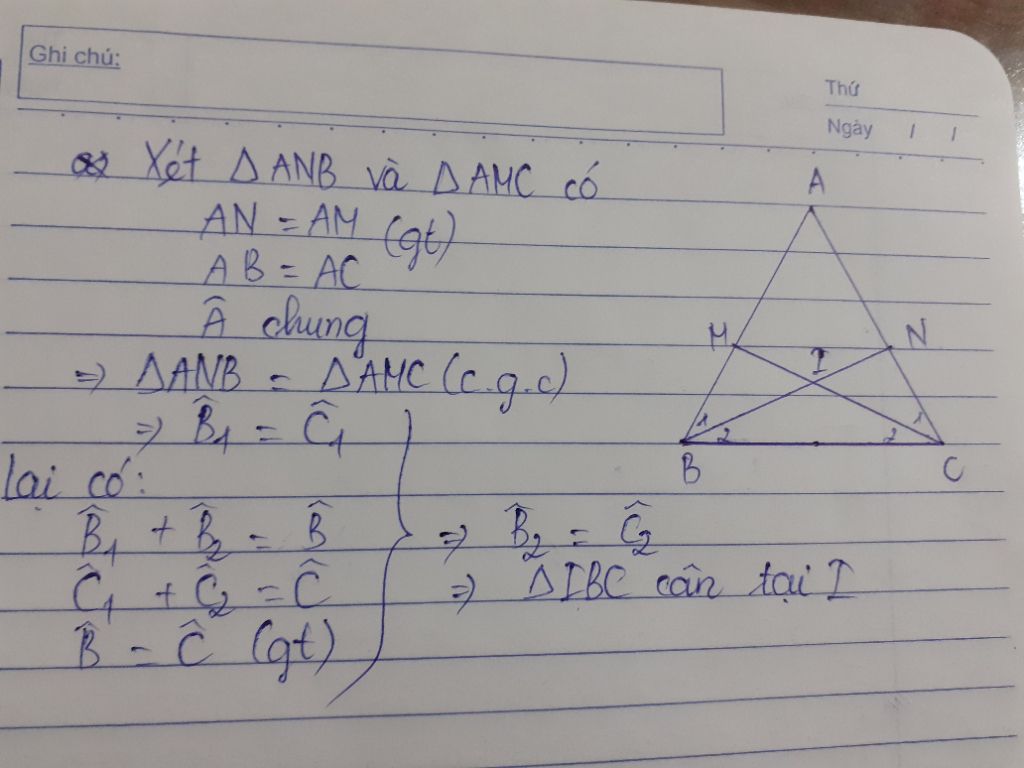 Ghi chú:
Thứ
Ngày / /
Xét ΔANB và ΔAMC có
AN = AM (gt)
AB = AC
Â chung
=> ΔANB = ΔAMC (c.g.c)
=> B̂₁ = Ĉ₁
lại có:
B̂₁ + B̂₂ = B̂
Ĉ₁ + Ĉ₂ = Ĉ
B̂ = Ĉ (gt)
=> B̂₂ = Ĉ₂
=> ΔIBC cân tại I
A
M N
I
1 1
2 2
B C